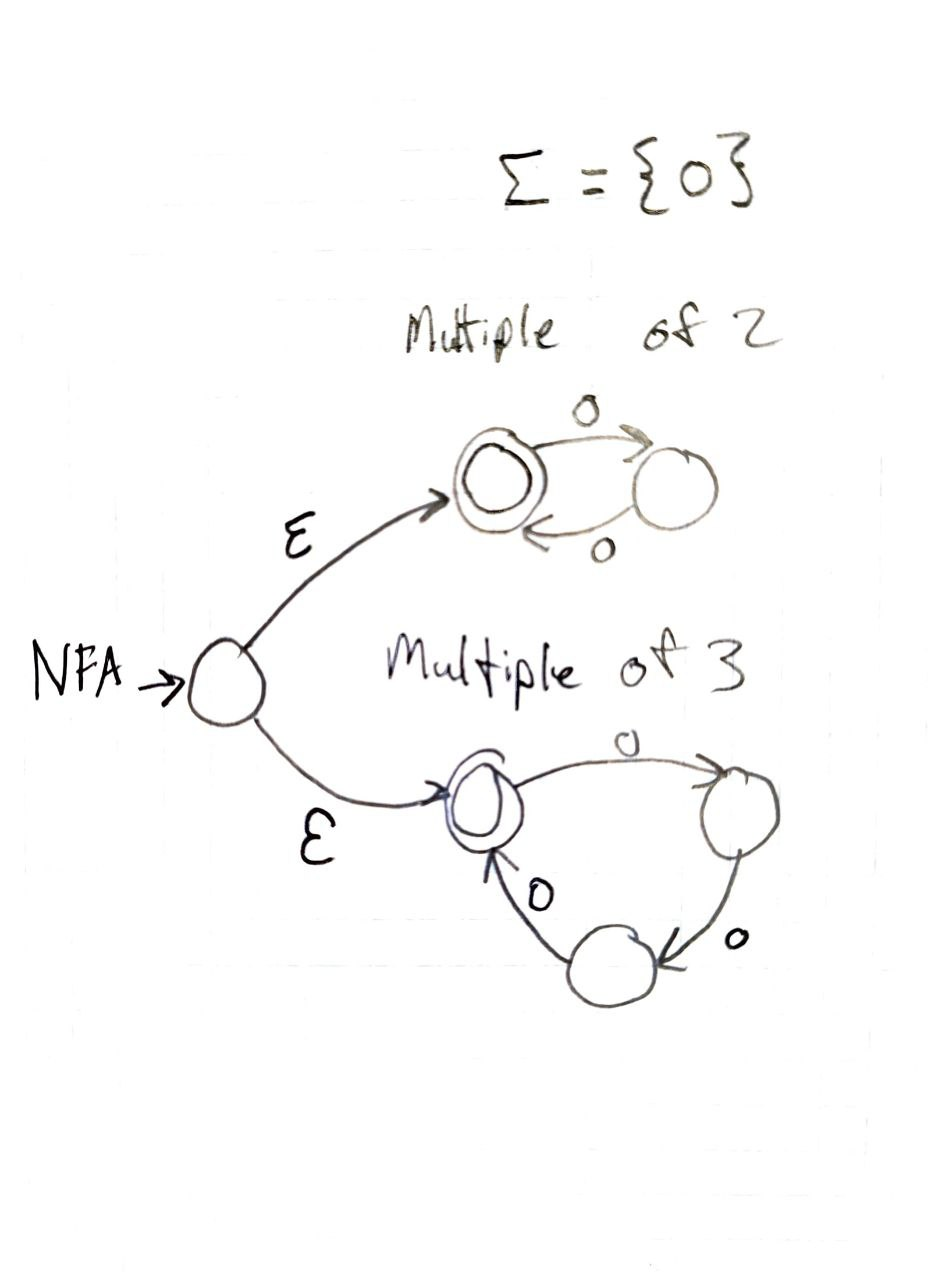 Σ = {0}
Multiple of 2
0
0
ε
NFA
Multiple of 3
0
ε
0
0